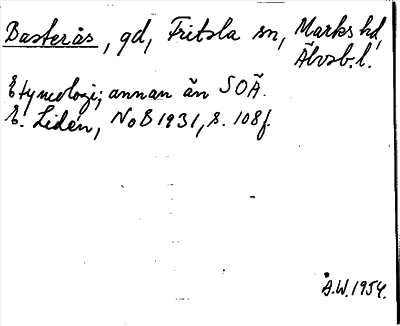 Basterås, gd, Fritsla sn, Marks hd,
Älvsb. l.
Etymologi; annan än SOÄ.
E. Lidén, NoB 1931, s. 108f.
Å.W. 1954.